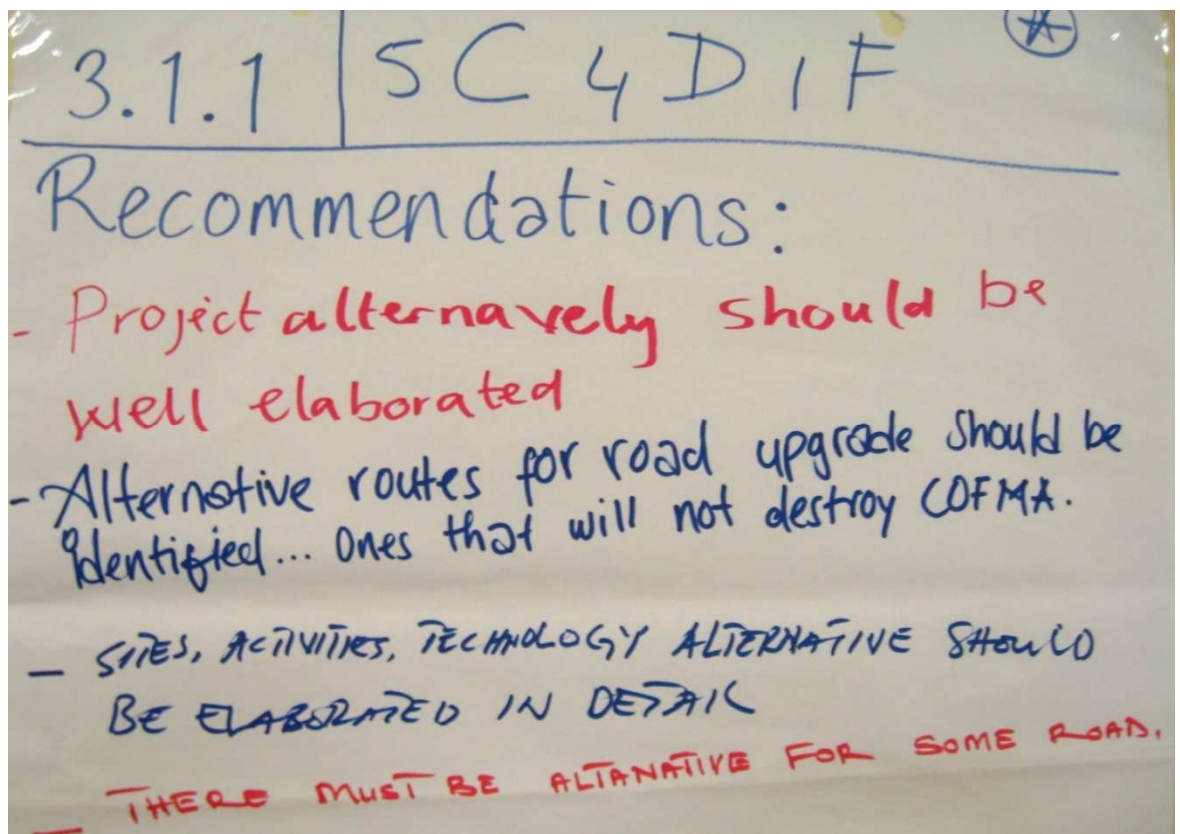 3.1.1 | 5C 4D 1F
Recommendations:
- Project alternavely should be
well elaborated
- Alternative routes for road upgrade should be
identified... Ones that will not destroy COFMA.
- SITES, ACTIVITIES, TECHNOLOGY ALTERNATIVE SHOULD
BE ELABORATED IN DETAIL
- THERE MUST BE ALTANATIVE FOR SOME ROAD.